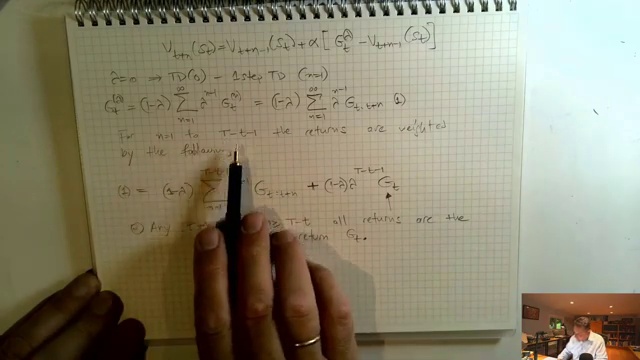 V_{t+n}(S_t) = V_{t+n-1}(S_t) + α[G_t^{(λ)} - V_{t+n-1}(S_t)]
λ=0 ⇒ TD(0) - 1 step TD (n=1)
G_t^{(λ)} = (1-λ) ∑_{n=1}^{∞} λ^{n-1} G_t^{(n)} = (1-λ) ∑_{n=1}^{∞} λ^{n-1} G_{t:t+n} (1)
For n=1 to T-t-1 the returns are weighted
by the following
(1) = (1-λ) ∑ G_{t:t+n} + (1-λ) λ^{T-t-1} G_t
Any T-t all returns are the
return G_t.